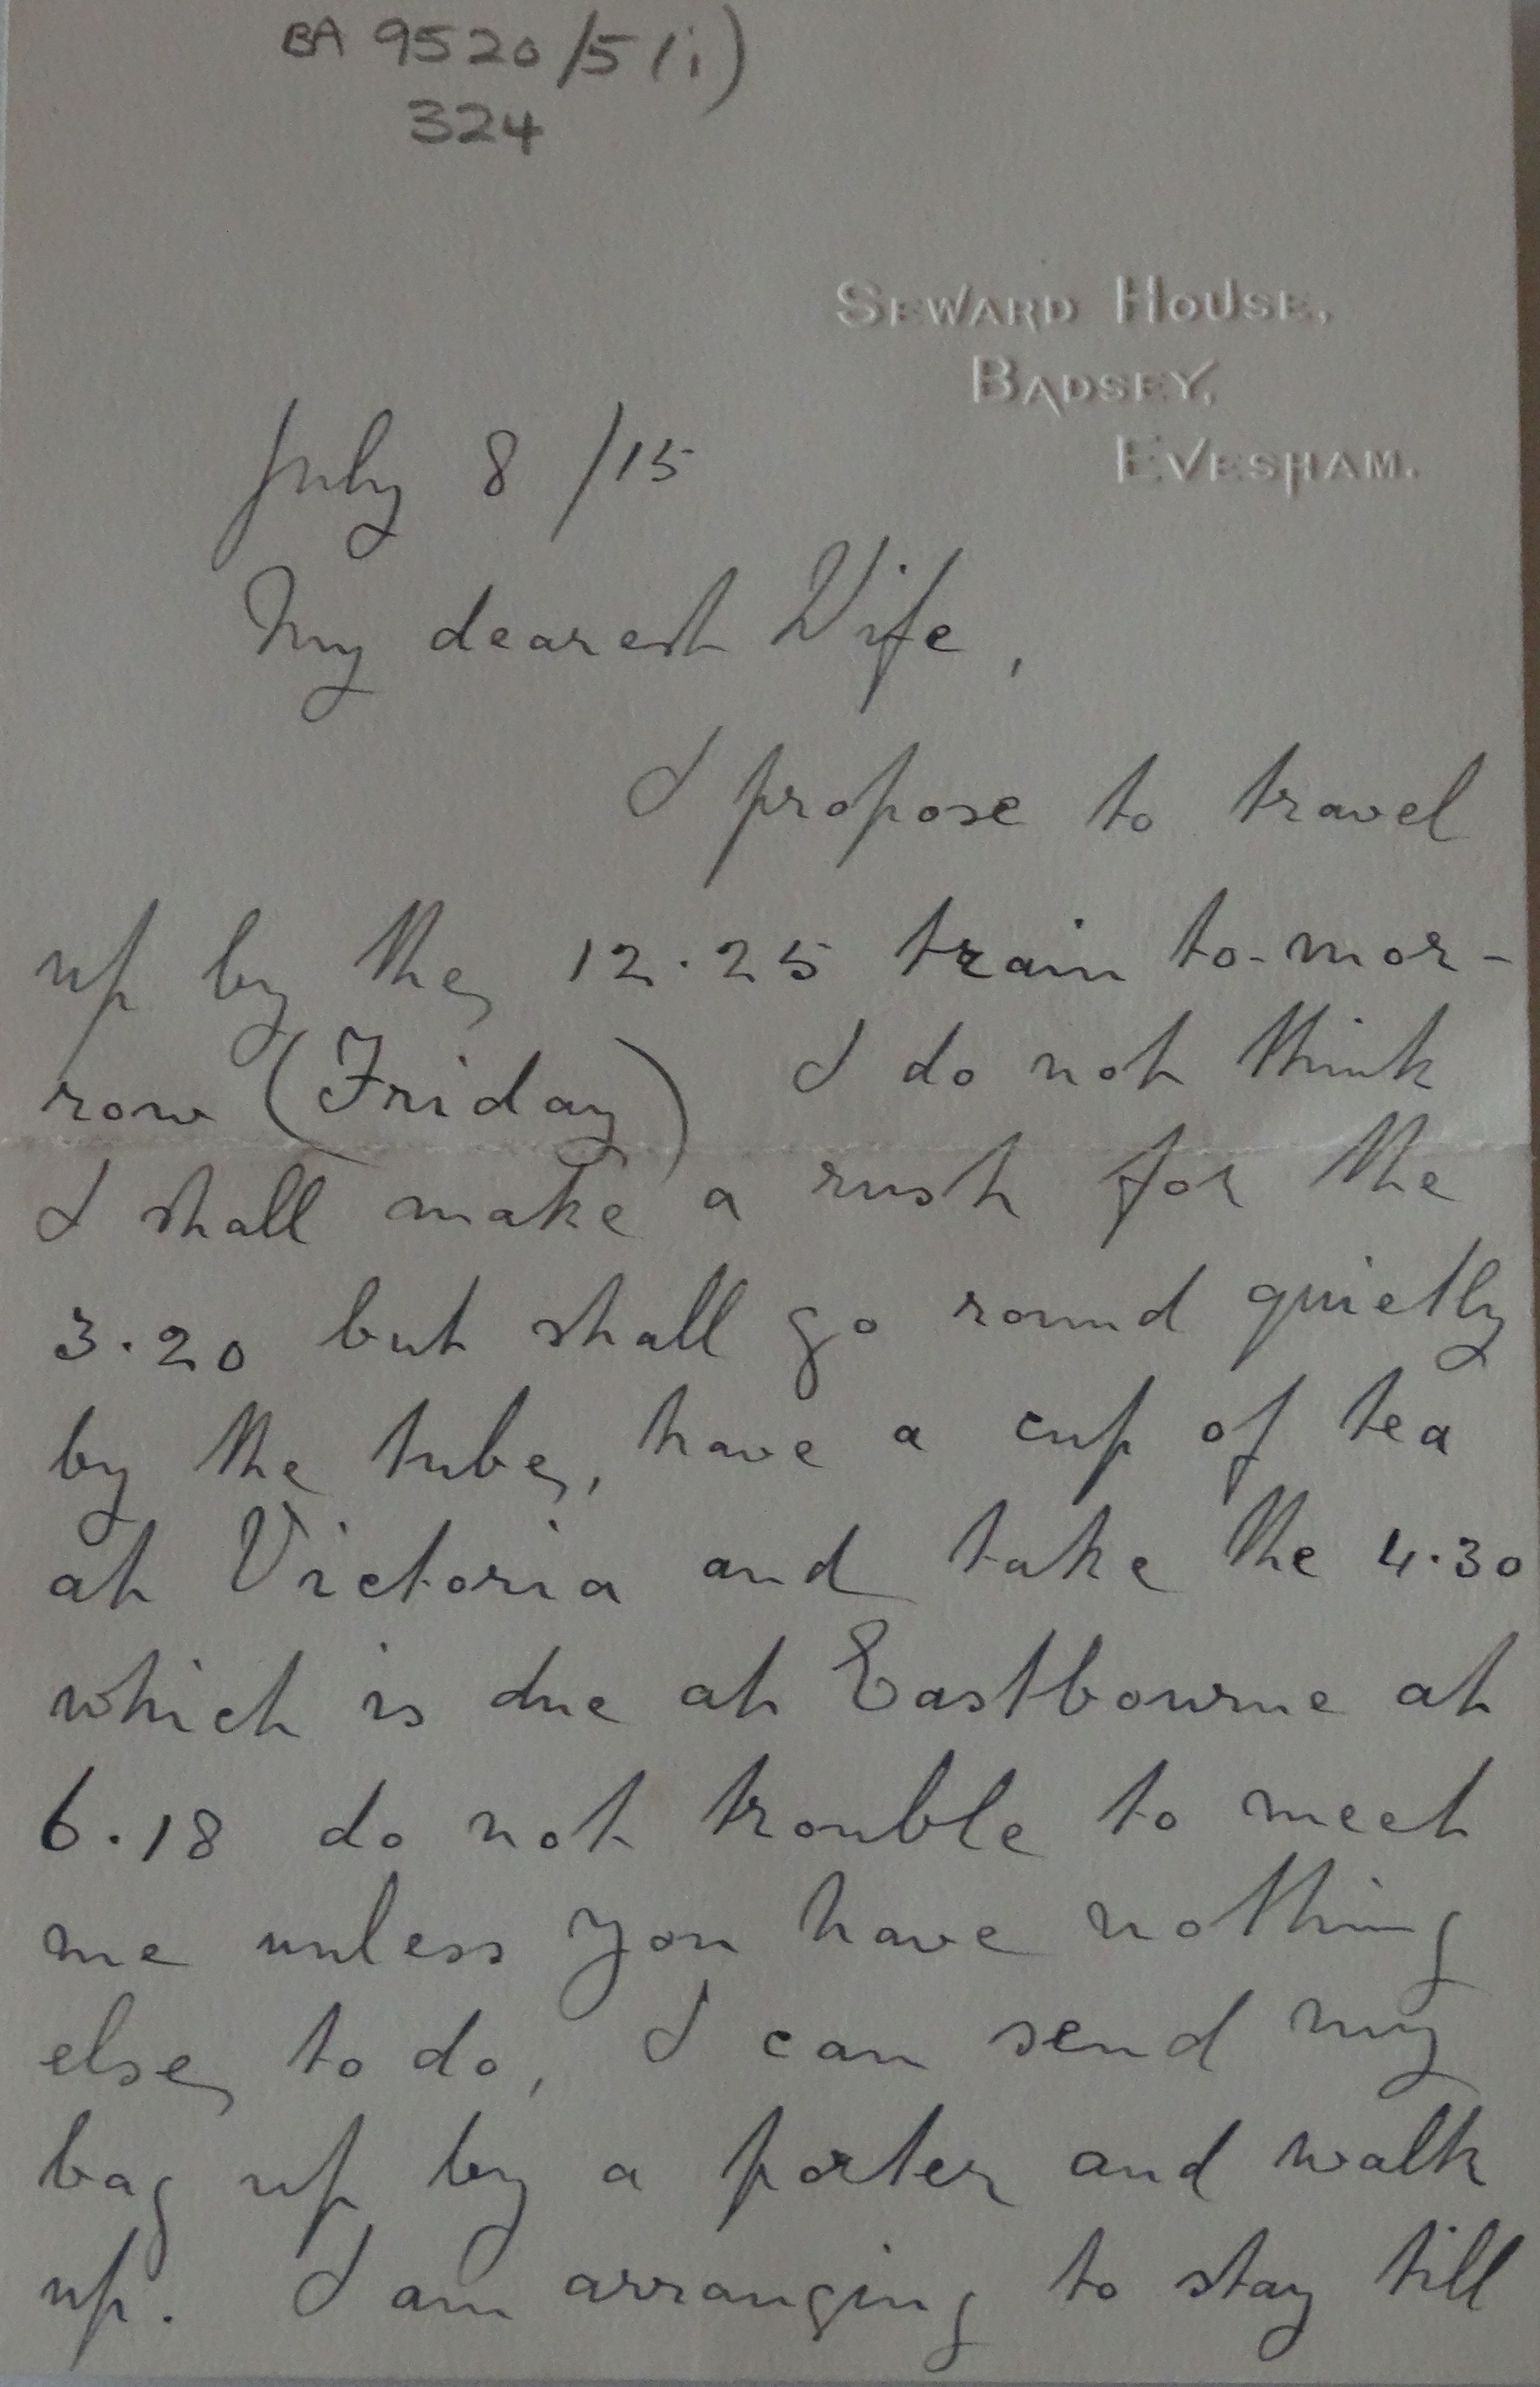 BA 9520/5(i)
324
SEWARD HOUSE,
BADSEY,
EVESHAM.
July 8 /15
My dearest Wife,
I propose to travel
up by the 12.25 train to-mor-
row (Friday) I do not think
I shall make a rush for the
3.20 but shall go round quietly
by the tube, have a cup of tea
at Victoria and take the 4.30
which is due at Eastbourne at
6.18 do not trouble to meet
me unless you have nothing
else to do, I can send my
bag up by a porter and walk
up. I am arranging to stay till